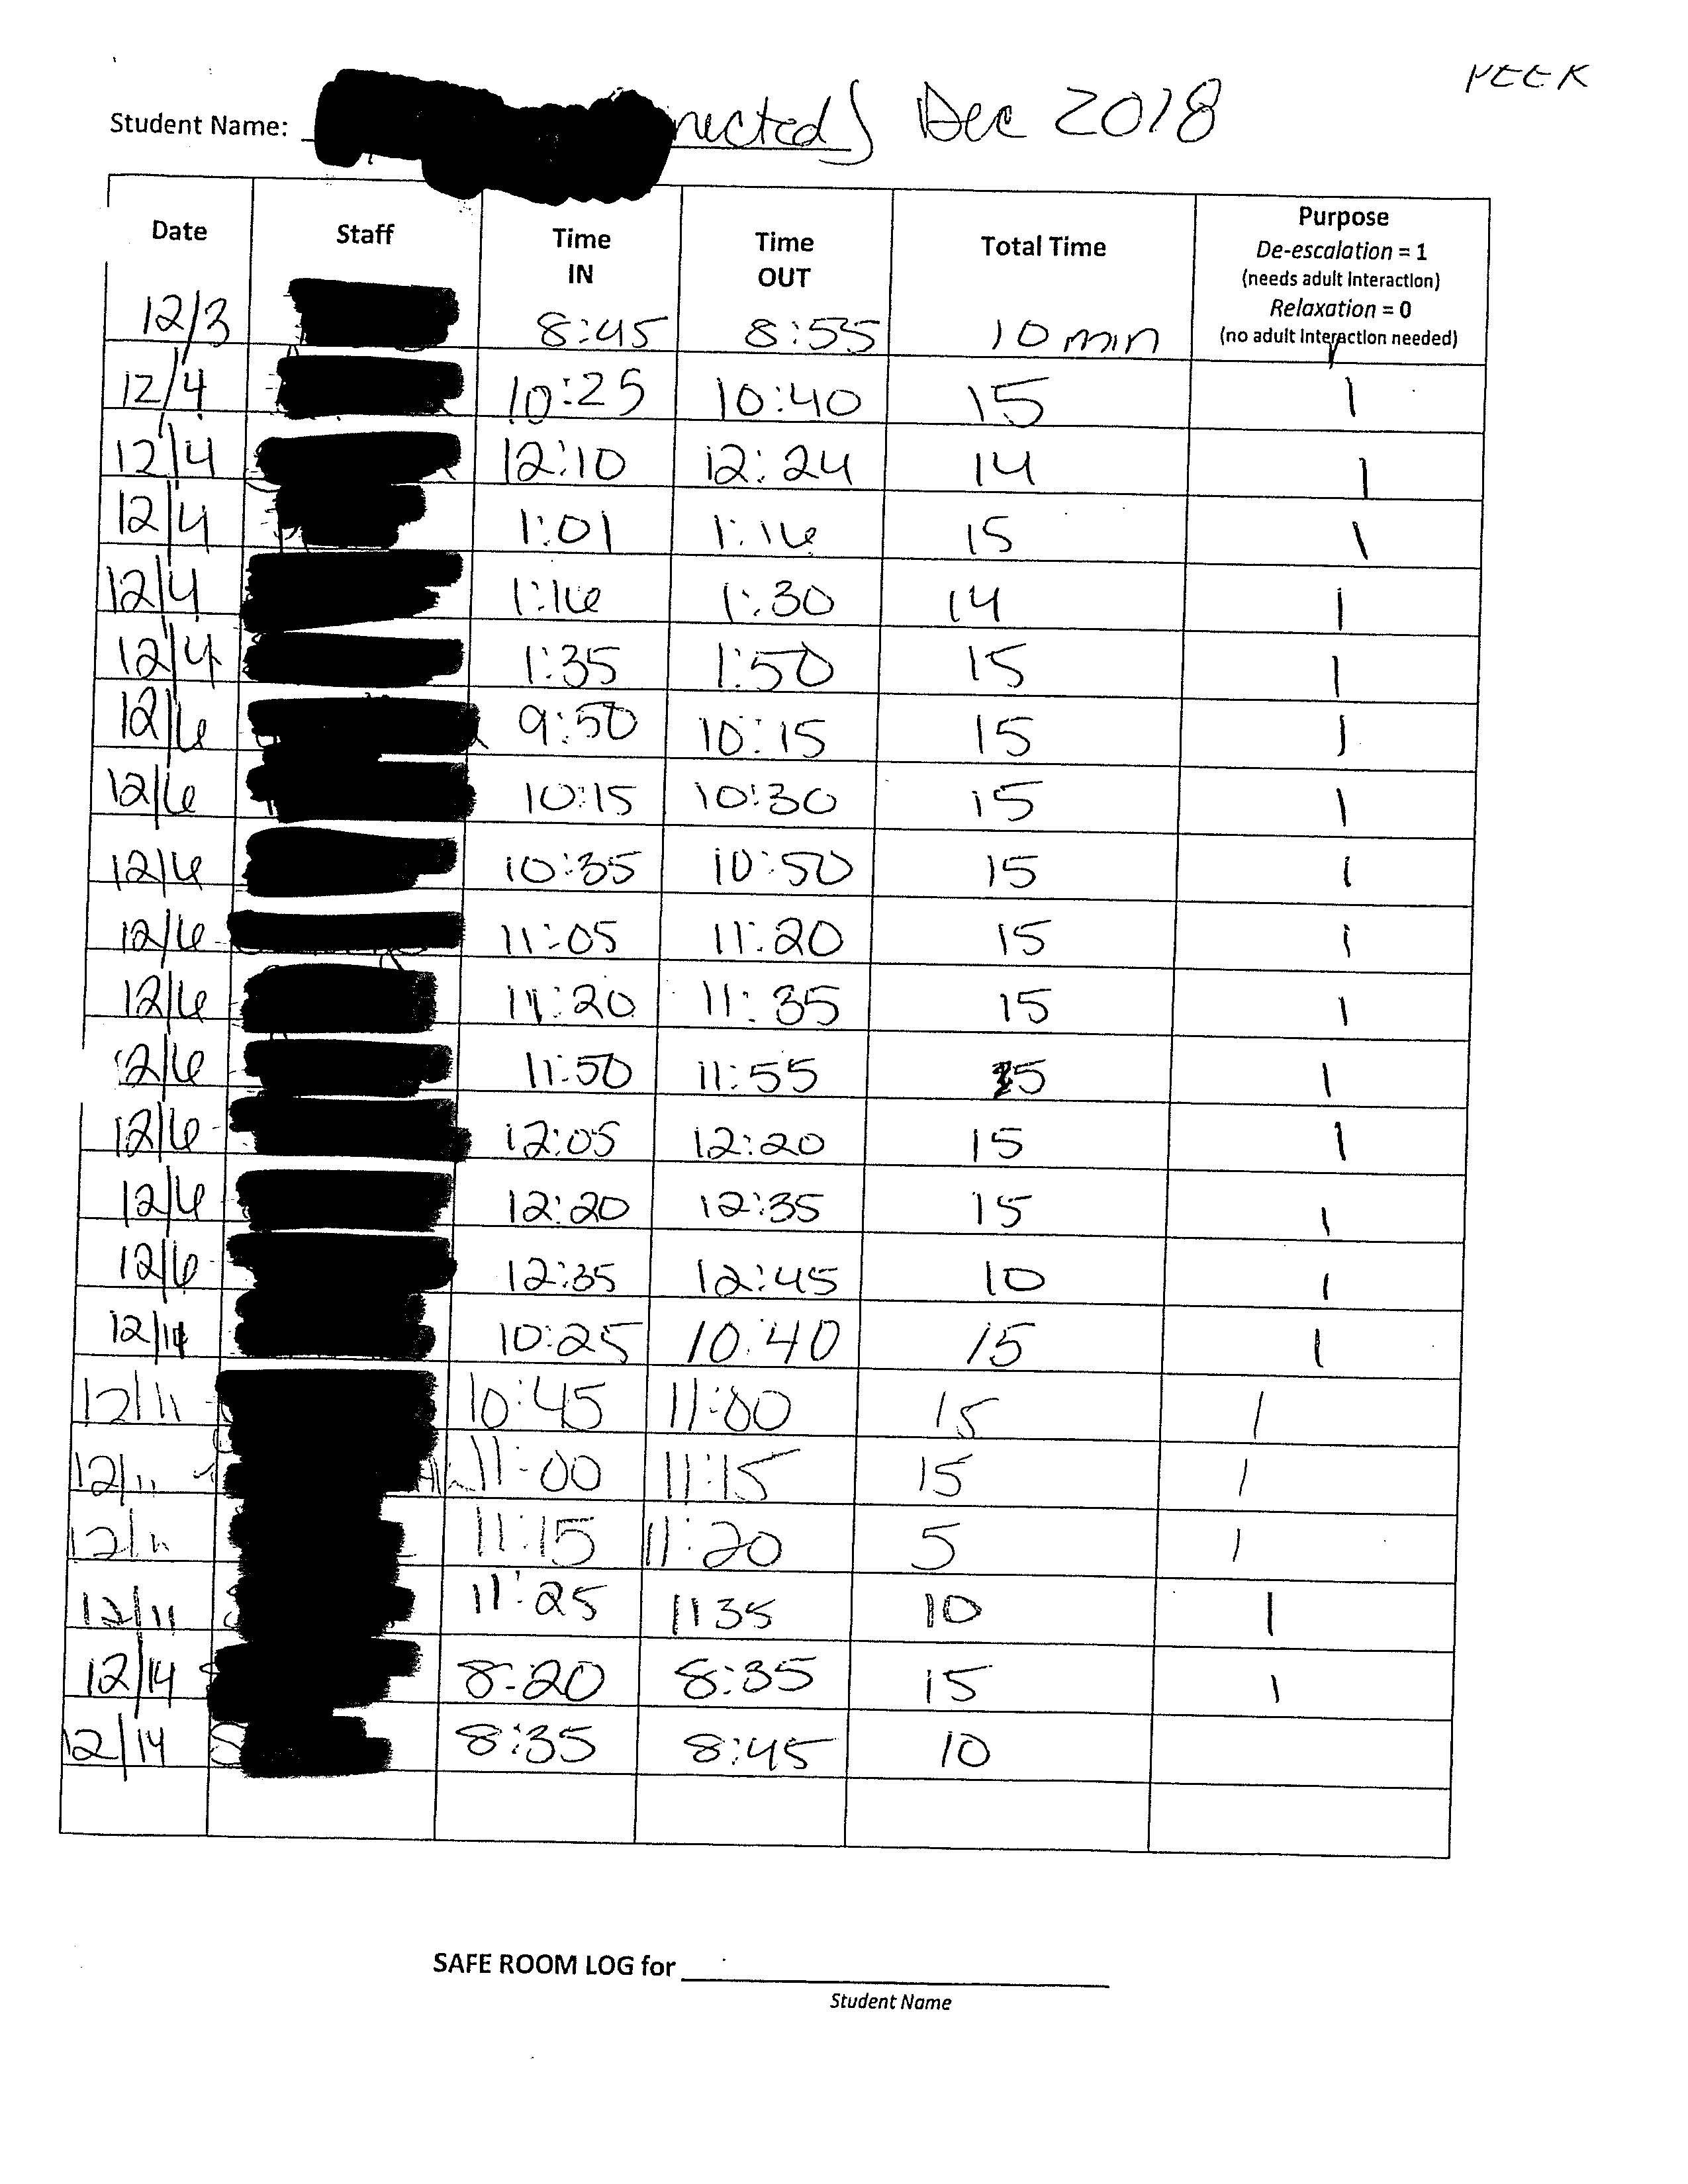 PEEK
Student Name: nected) Dec 2018
Date Staff Time IN Time OUT Total Time Purpose
De-escalation = 1
(needs adult interaction)
Relaxation = 0
(no adult interaction needed)
12/3 8:45 8:55 10 min 1
12/4 10:25 10:40 15 1
12/4 12:10 12:24 14 1
12/4 1:01 1:16 15 1
12/4 1:16 1:30 14 1
12/4 1:35 1:50 15 1
12/6 9:50 10:15 15 1
12/6 10:15 10:30 15 1
12/6 10:35 10:50 15 1
12/6 11:05 11:20 15 1
12/6 11:20 11:35 15 1
12/6 11:50 11:55 5 1
12/6 12:05 12:20 15 1
12/6 12:20 12:35 15 1
12/6 12:35 12:45 10 1
12/11 10:25 10:40 15 1
12/11 10:45 11:00 15 1
12/11 11:00 11:15 15 1
12/11 11:15 11:20 5 1
12/11 11:25 1135 10 1
12/14 8:20 8:35 15 1
12/14 8:35 8:45 10
SAFE ROOM LOG for
Student Name